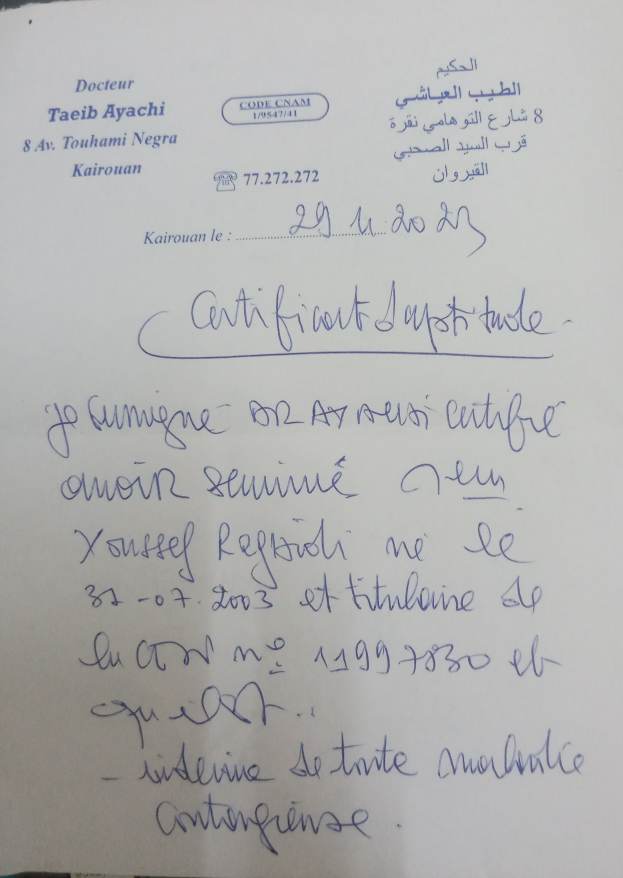 Docteur
Taeib Ayachi
8 Av. Touhami Negra
Kairouan
CODE CNAM
1/9547/41
☎ 77.272.272
الحكيم
الطيب العياشي
8 شارع التوهامي نقرة
قرب السيد الصحبي
القيروان
Kairouan le : 29 11 2023
Certificat d'aptitude
je sumigne DR AYACHI certifie
avoir
Youssef né le
31-07-2003 et titulaire de
la CIN nº 11997830 et
qu'il est..
- indemne de toute maladie
contagieuse.